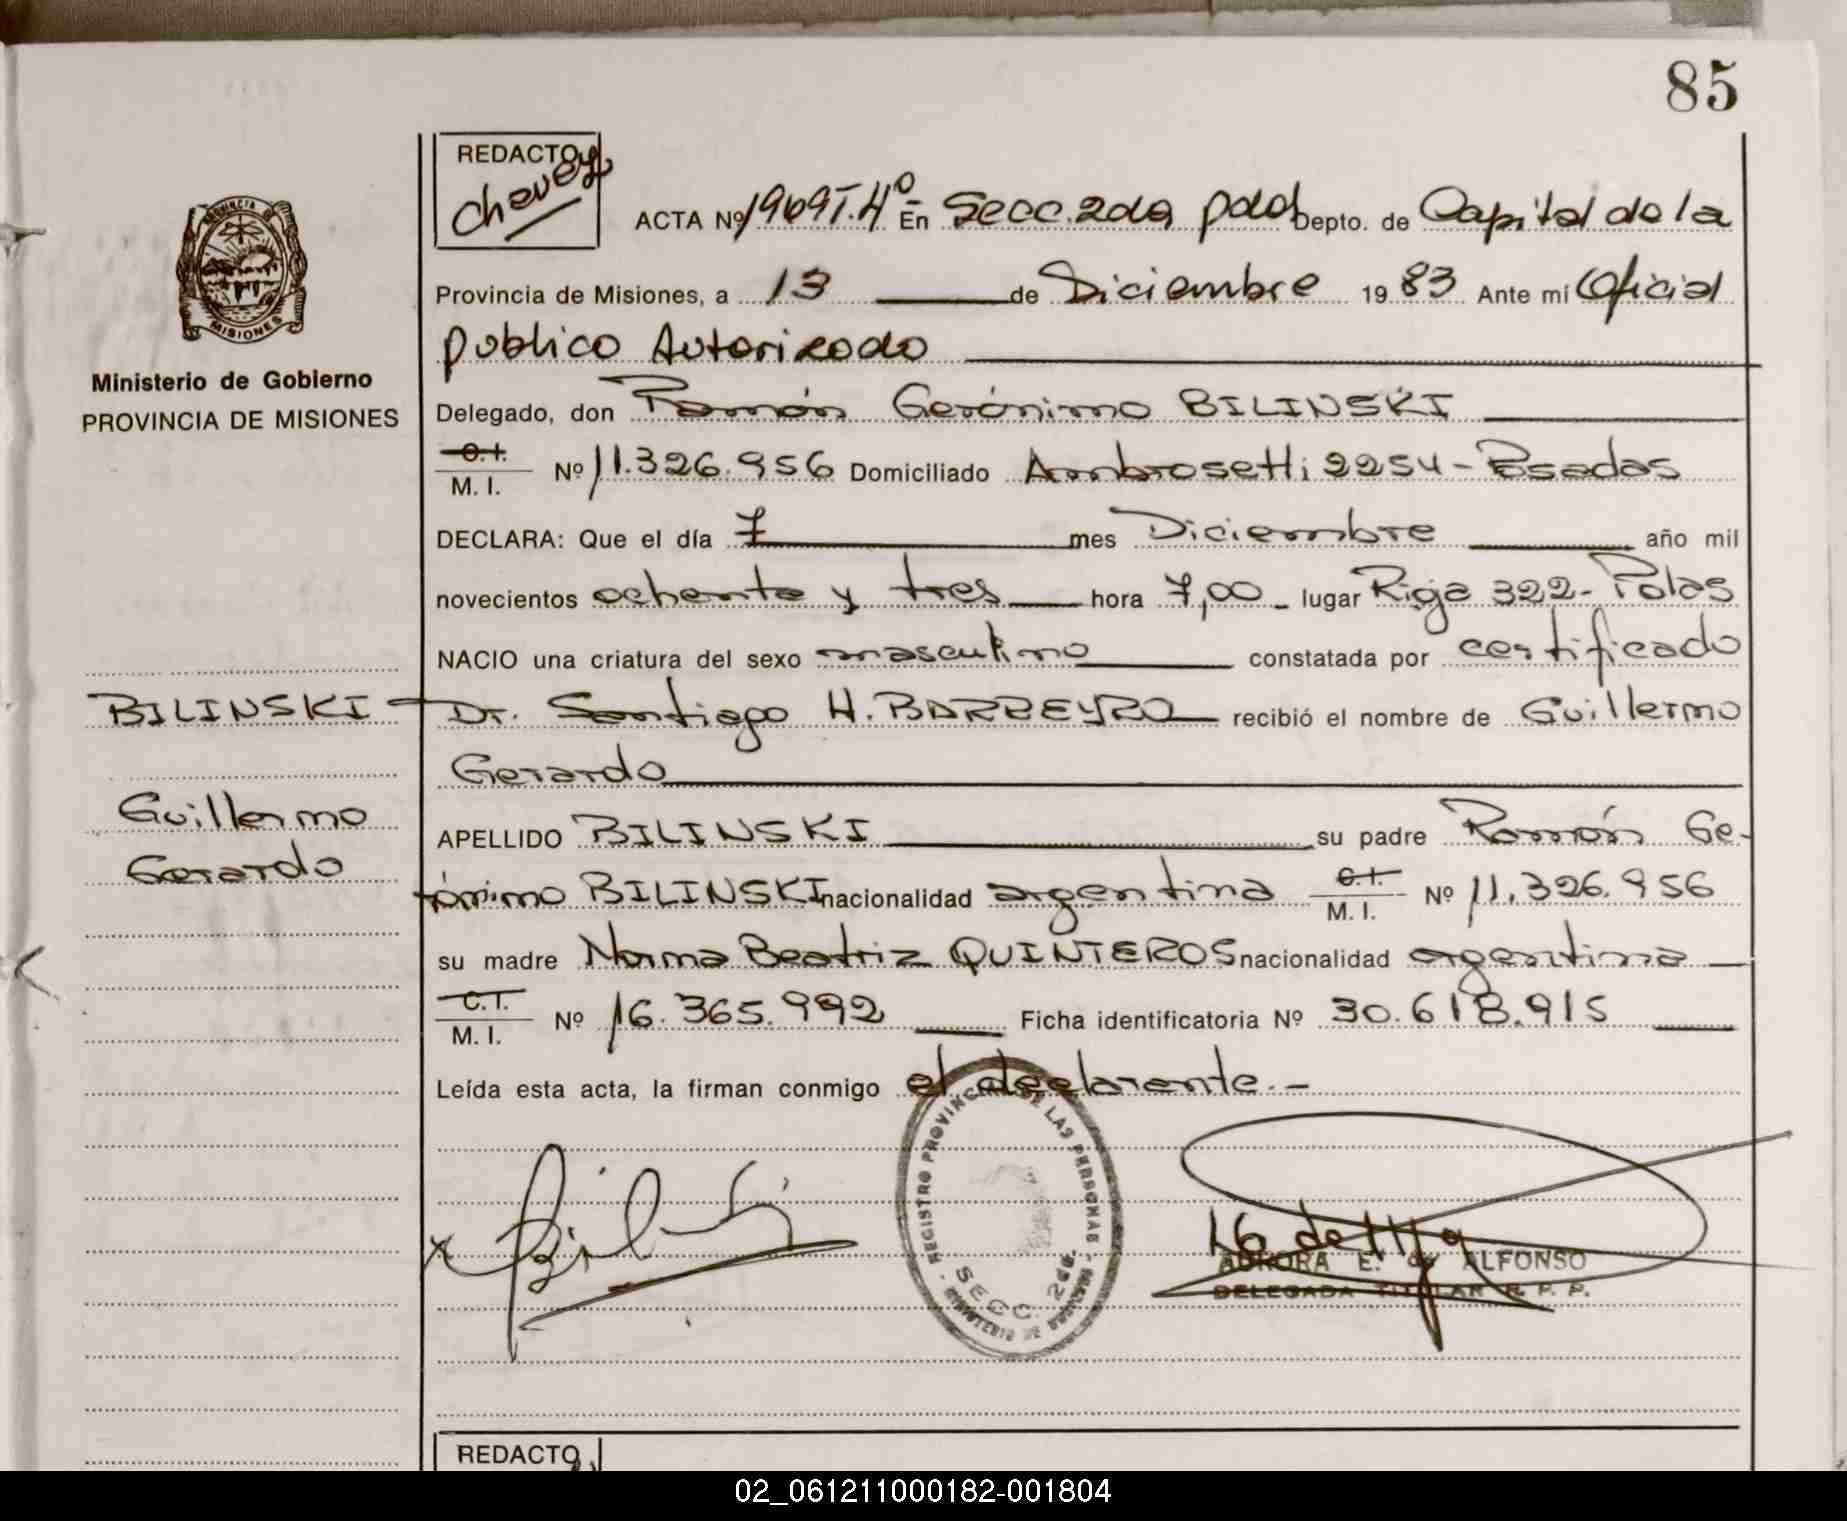 85
REDACTO
Chavez
ACTA Nº 1969 T.4º En Secc. 2da Pdas Depto. de Capital de la
PROVINCIA
MISIONES
Provincia de Misiones, a 13 de Diciembre 1983 Ante mi Oficial
Publico Autorizado
Ministerio de Gobierno
PROVINCIA DE MISIONES
Delegado, don Ramón Gerónimo BILINSKI
C.I.
M. I. Nº 11.326.956 Domiciliado Ambrosetti 2254 - Posadas
DECLARA: Que el día 7 mes Diciembre año mil
novecientos ochenta y tres hora 7,00 lugar Rioja 322 - Pdas
NACIO una criatura del sexo masculino constatada por certificado
BILINSKI
Dr. Santiago H. BARREYRO recibió el nombre de Guillermo
Gerardo
Guillermo
Gerardo
APELLIDO BILINSKI su padre Ramón Ge-
rónimo BILINSKI nacionalidad argentina C.I. M. I. Nº 11.326.956
su madre Norma Beatriz QUINTEROS nacionalidad argentina
C.I.
M. I. Nº 16.365.992 Ficha identificatoria Nº 30.618.915
Leída esta acta, la firman conmigo el declarante.-
REGISTRO PROVINCIAL DE LAS PERSONAS
SECC. 2da.
MINISTERIO DE GOBIERNO
AURORA E. de ALFONSO
DELEGADA TITULAR R. P. P.
REDACTO
02_061211000182-001804